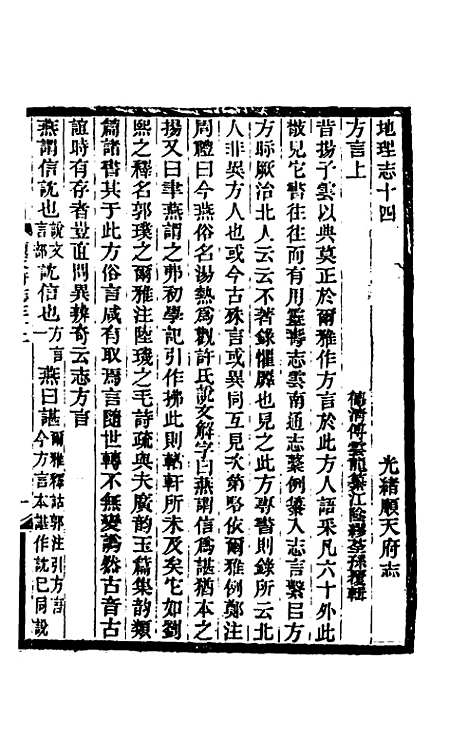 地理志十四　光緒順天府志
方言上　德清傅雲龍纂江陰繆荃孫覆輯
昔揚子雲以典莫正於爾雅作方言於此方人語采凡六十外此
散見它書往往而有用靈壽志雲南通志纂例纂入志言繫曰方
方眎厥治北人云云不著錄懼贗也見之此方專書則錄所云北
人非吳方人或今古殊言或異同互見次第略依爾雅例鄭注
周禮曰今燕俗名湯熱為觀許氏說文解字曰燕謂信為諶猶本之
揚又曰聿燕謂之弗初學記引作拂此則輶軒所未及矣它如劉
熙之釋名郭璞之爾雅注陸璣之毛詩疏與夫廣韵玉篇集韵類
篇諸書其于此方俗言咸有取焉言隨世轉不無變譌然古音古
誼時有存者豈直問異辨奇云志方言
燕謂信說也說文言部說信也方言一燕曰諶爾雅釋詁郭注引方言今方言本諶作訦已同說